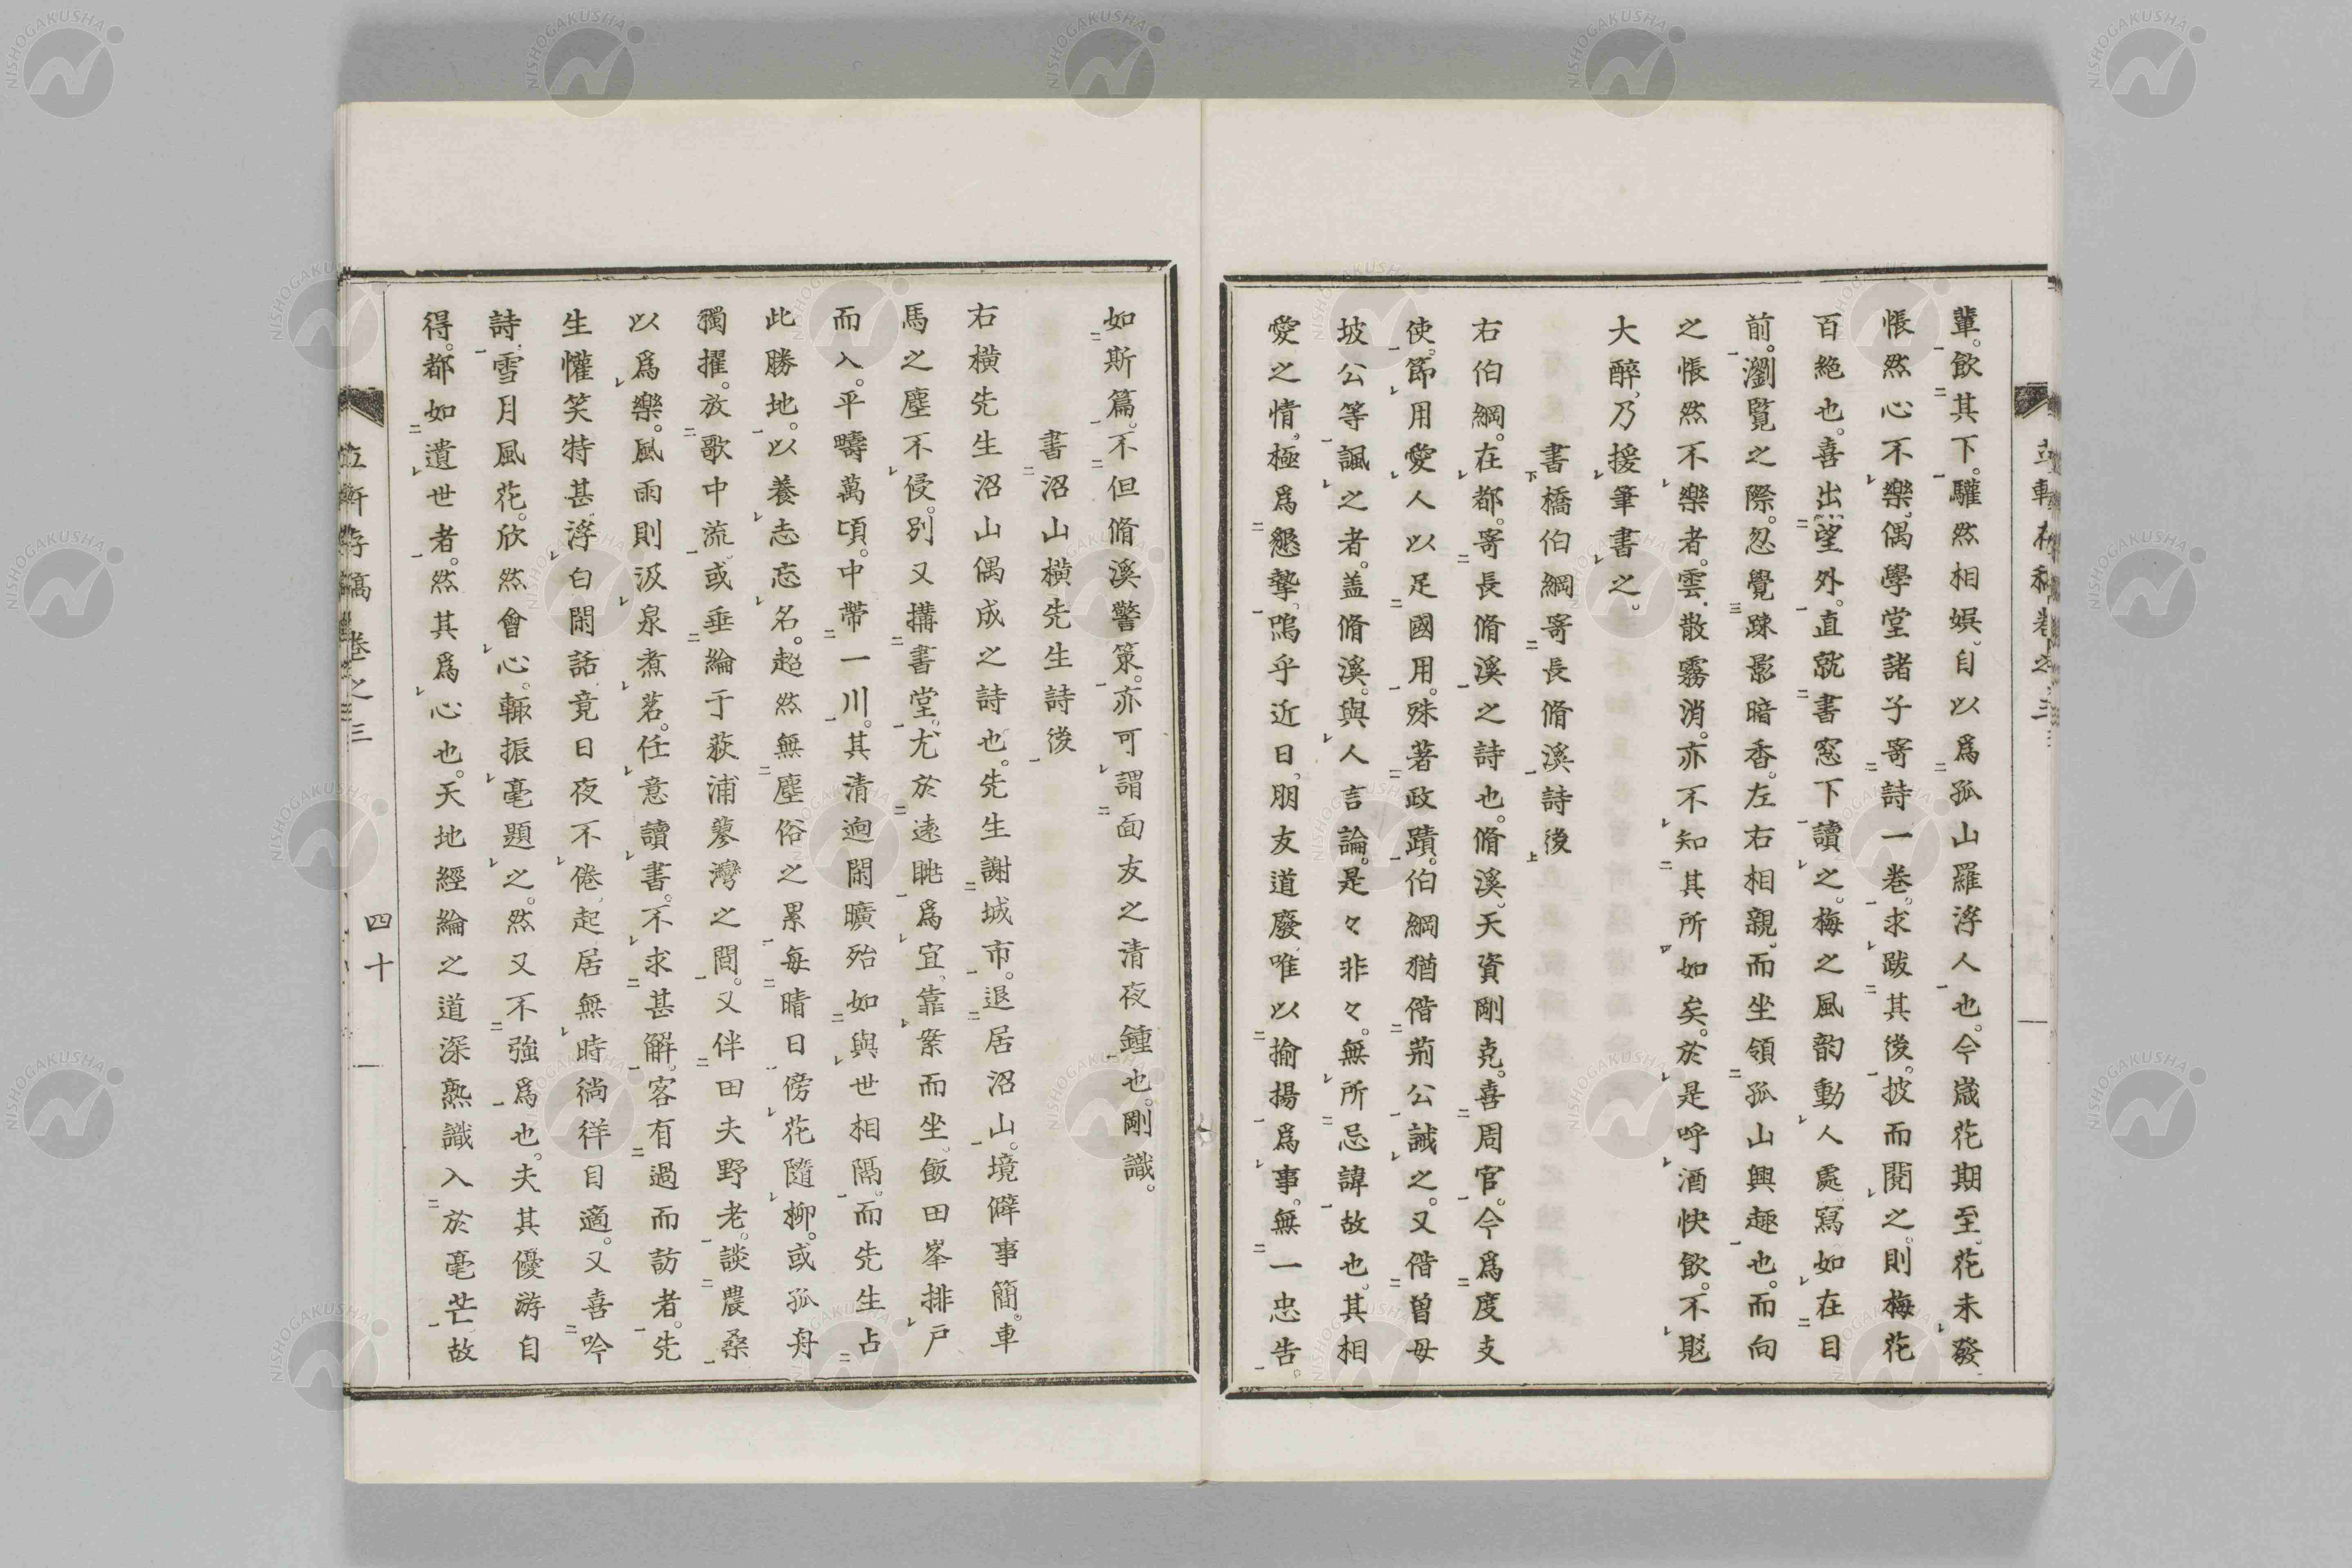 輩。飲其下。驩然相娯。自以爲孤山羅浮人也。今歲花期至。花未發
悵然心不樂。偶學堂諸子寄詩一卷。求跋其後。披而閱之。則梅花
百絶也。喜出望外。直就書窓下讀之。梅之風韵動人處。寫如在目
前。瀏覽之際。忽覺疎影暗香。左右相親。而坐領孤山興趣也。而向
之悵然不樂者。雲散霧消。亦不知其所如矣。於是呼酒快飲。不覺
大醉。乃援筆書之。
書橋伯綱寄長脩溪詩後
右伯綱。在都。寄長脩溪之詩也。脩溪。天資剛克。喜周官。今爲度支
使。節用愛人以足國用。殊著政蹟。伯綱猶偕荊公誡之。又偕曽毋
坡公等諷之者。盖脩溪。與人言論。是々非々。無所忌諱故也。其相
愛之情。極爲懇摯。嗚乎近日。朋友道廢。唯以揄揚爲事。無一忠告。
如斯篇。不但脩溪警策。亦可謂面友之清夜鍾也。剛識。
書沼山橫先生詩後
右橫先生沼山偶成之詩也。先生謝城市。退居沼山。境僻事簡。車
馬之塵不侵。別又搆書堂。尤於遠眺爲宜。靠案而坐。飯田峯排戶
而入。平疇萬頃。中帶一川。其清逈閑曠殆如與世相隔。而先生占
此勝地。以養志忘名。超然無塵俗之累。每晴日。傍花隨柳。或孤舟
獨擢。放歌中流。或垂綸于荻浦蓼灣之間。又伴田夫野老。談農桑
以爲樂。風雨則汲泉煮茗。任意讀書。不求甚解。客有過而訪者。先
生懽笑特甚。浮白閑話竟日夜不倦。起居無時徜徉自適。又喜吟
詩。雪月風花。欣然會心。輙振毫題之。然又不強爲也。夫其優游自
得。都如遺世者。然其爲心也。天地經綸之道深熟識入於毫芒。故
立軒存稿 卷之三 四十